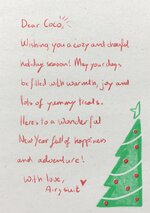 Dear Coco,
Wishing you a cozy and cheerful
holiday season! May your days
be filled with warmth, joy and
lots of yummy treats.
Here's to a wonderful
New Year full of happiness
and adventure!
With love,
Airysuit